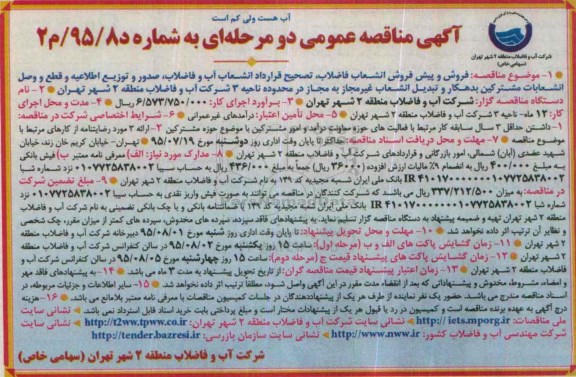 آب هست ولی کم است
آگهی مناقصه عمومی دو مرحله‌ای به شماره د۲م/۹۵/۸
شرکت آب و فاضلاب منطقه ۲ شهر تهران
(سهامی خاص)
۱- موضوع مناقصه: فروش و پیش فروش انشعاب فاضلاب، تصحیح قرارداد انشعاب آب و فاضلاب، صدور و توزیع اطلاعیه و قطع و وصل
انشعابات مشترکین بدهکار و تبدیل انشعاب غیرمجاز به مجاز در محدوده ناحیه ۳ شرکت آب و فاضلاب منطقه ۲ شهر تهران ۲- نام
دستگاه مناقصه گزار: شرکت آب و فاضلاب منطقه ۲ شهر تهران ۳- برآورد اجرای کار: ۶/۵۷۳/۷۵۰/۰۰۰ ریال ۴- مدت و محل اجرای
کار: ۱۲ ماه- ناحیه ۳ شرکت آب و فاضلاب منطقه ۲ شهر تهران ۵- محل تأمین اعتبار: درآمدهای غیرعمرانی ۶- شرایط اختصاصی شرکت در مناقصه:
۱- داشتن حداقل ۳ سال سابقه کار مرتبط با فعالیت های حوزه معاونت درآمد و امور مشترکین ۲- ارائه ۲ مورد رضایتنامه از کارهای مرتبط با
موضوع مناقصه ۷- مهلت و محل دریافت اسناد مناقصه: حداکثر تا پایان وقت اداری روز دوشنبه مورخ ۹۵/۰۷/۱۹ تهران- خیابان کریم خان زند، خیابان
شهید عضدی (آبان) شمالی، امور بازرگانی و قراردادهای شرکت آب و فاضلاب منطقه ۲ شهر تهران ۸- مدارک مورد نیاز: الف) معرفی نامه معتبر ب) فیش بانکی
به مبلغ ۴۰۰/۰۰۰ ریال به انضمام ۹٪ مالیات ارزش افزوده (۳۶/۰۰۰ ریال) جمعا به مبلغ ۴۳۶/۰۰۰ ریال به حساب سیبا ۰۱۰۷۷۲۵۸۳۸۰۰۲ نزد شماره شبا
بانک ملی ایران شعبه تجدید کد ۱۳۹ به نام شرکت آب و فاضلاب منطقه ۲ شهر تهران ۹- مبلغ تضمین شرکت
در مناقصه: به میزان ۳۳۷/۲۱۲/۵۰۰ ریال می باشد که شرکت کنندگان در مناقصه می توانند به صورت فیش واریز نقدی به حساب سیبا ۰۱۰۷۷۲۵۸۳۸۰۰۲ نزد
منطقه ۲ شهر تهران تهیه و ضمیمه پیشنهاد به دستگاه مناقصه گزار تسلیم نماید. به پیشنهادهای فاقد سپرده، سپرده های مخدوش، سپرده های کمتر از میزان مقرر، چک شخصی
و نظایر آن ترتیب اثر داده نخواهد شد. ۱۰- مهلت و محل تحویل پیشنهاد: تا پایان وقت اداری روز شنبه مورخ ۹۵/۰۸/۰۱ دبیرخانه شرکت آب و فاضلاب منطقه
۲ شهر تهران ۱۱- زمان گشایش پاکت های الف و ب (مرحله اول): ساعت ۱۵ روز یکشنبه مورخ ۹۵/۰۸/۰۲ در سالن کنفرانس شرکت آب و فاضلاب منطقه
۲ شهر تهران ۱۲- زمان گشایش پاکت های پیشنهاد قیمت ج (مرحله دوم): ساعت ۱۵ روز چهارشنبه مورخ ۹۵/۰۸/۰۵ در سالن کنفرانس شرکت آب و
فاضلاب منطقه ۲ شهر تهران ۱۳- زمان اعتبار پیشنهاد قیمت مناقصه گران: از تاریخ تحویل پیشنهاد به مدت ۳ ماه می باشد. ۱۴- به پیشنهادهای فاقد مهر
و امضاء، مشروط، مخدوش و پیشنهاداتی که بعد از انقضاء مدت مقرر در این آگهی واصل شود، مطلقا ترتیب اثر داده نخواهد شد. ۱۵- سایر اطلاعات و جزئیات مربوطه، در
اسناد مناقصه مندرج می باشد. حضور یک نفر نماینده از طرف هر یک از پیشنهاددهندگان در جلسات کمیسیون مناقصات با معرفی نامه معتبر بلامانع می باشد. ۱۶- هزینه
درج آگهی به عهده برنده مناقصه است و کمیسیون در رد یا قبول هر یک از پیشنهادات مختار است و مبلغ پرداختی بابت خرید اسناد قابل استرداد نمی باشد. نشانی سایت
ملی مناقصات: http://iets.mporg.ir نشانی سایت شرکت آب و فاضلاب منطقه ۲ شهر تهران: http://t2ww.tpww.co.ir نشانی سایت
شرکت مهندسی آب و فاضلاب کشور: http://www.nww.ir نشانی سایت سازمان بازرسی: http://tender.bazresi.ir
شرکت آب و فاضلاب منطقه ۲ شهر تهران (سهامی خاص)